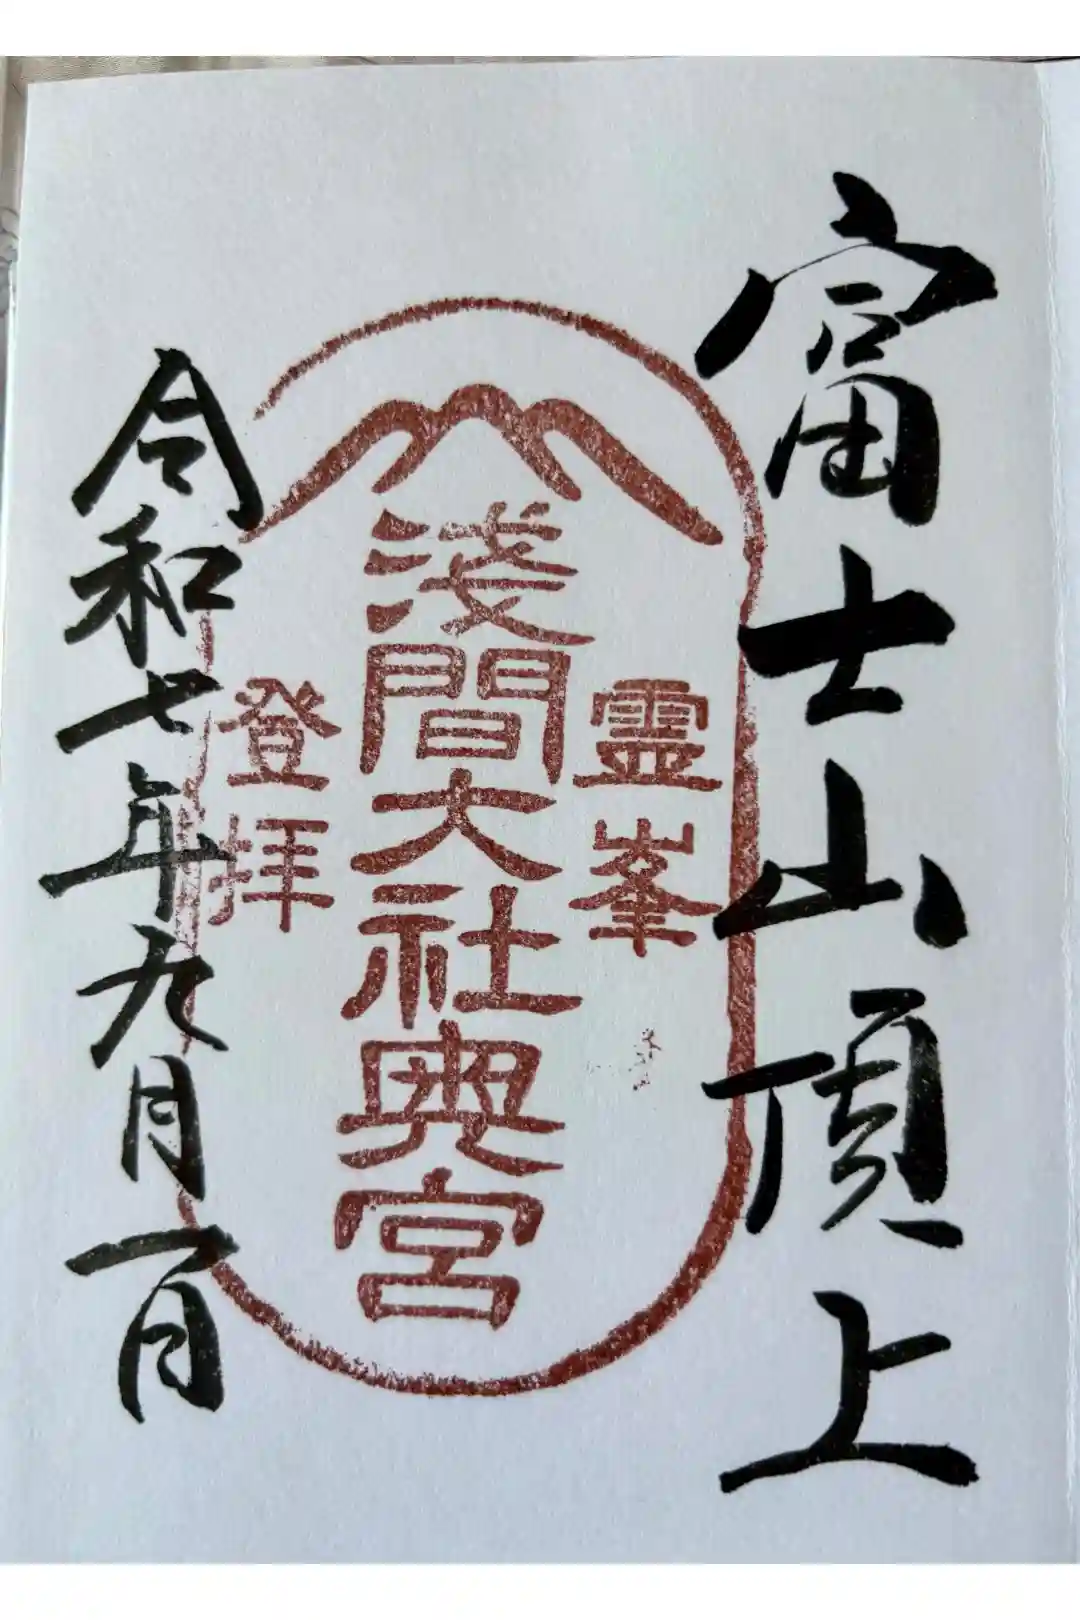 富士山頂上
霊峯
浅間大社奥宮
登拝
令和七年九月一日